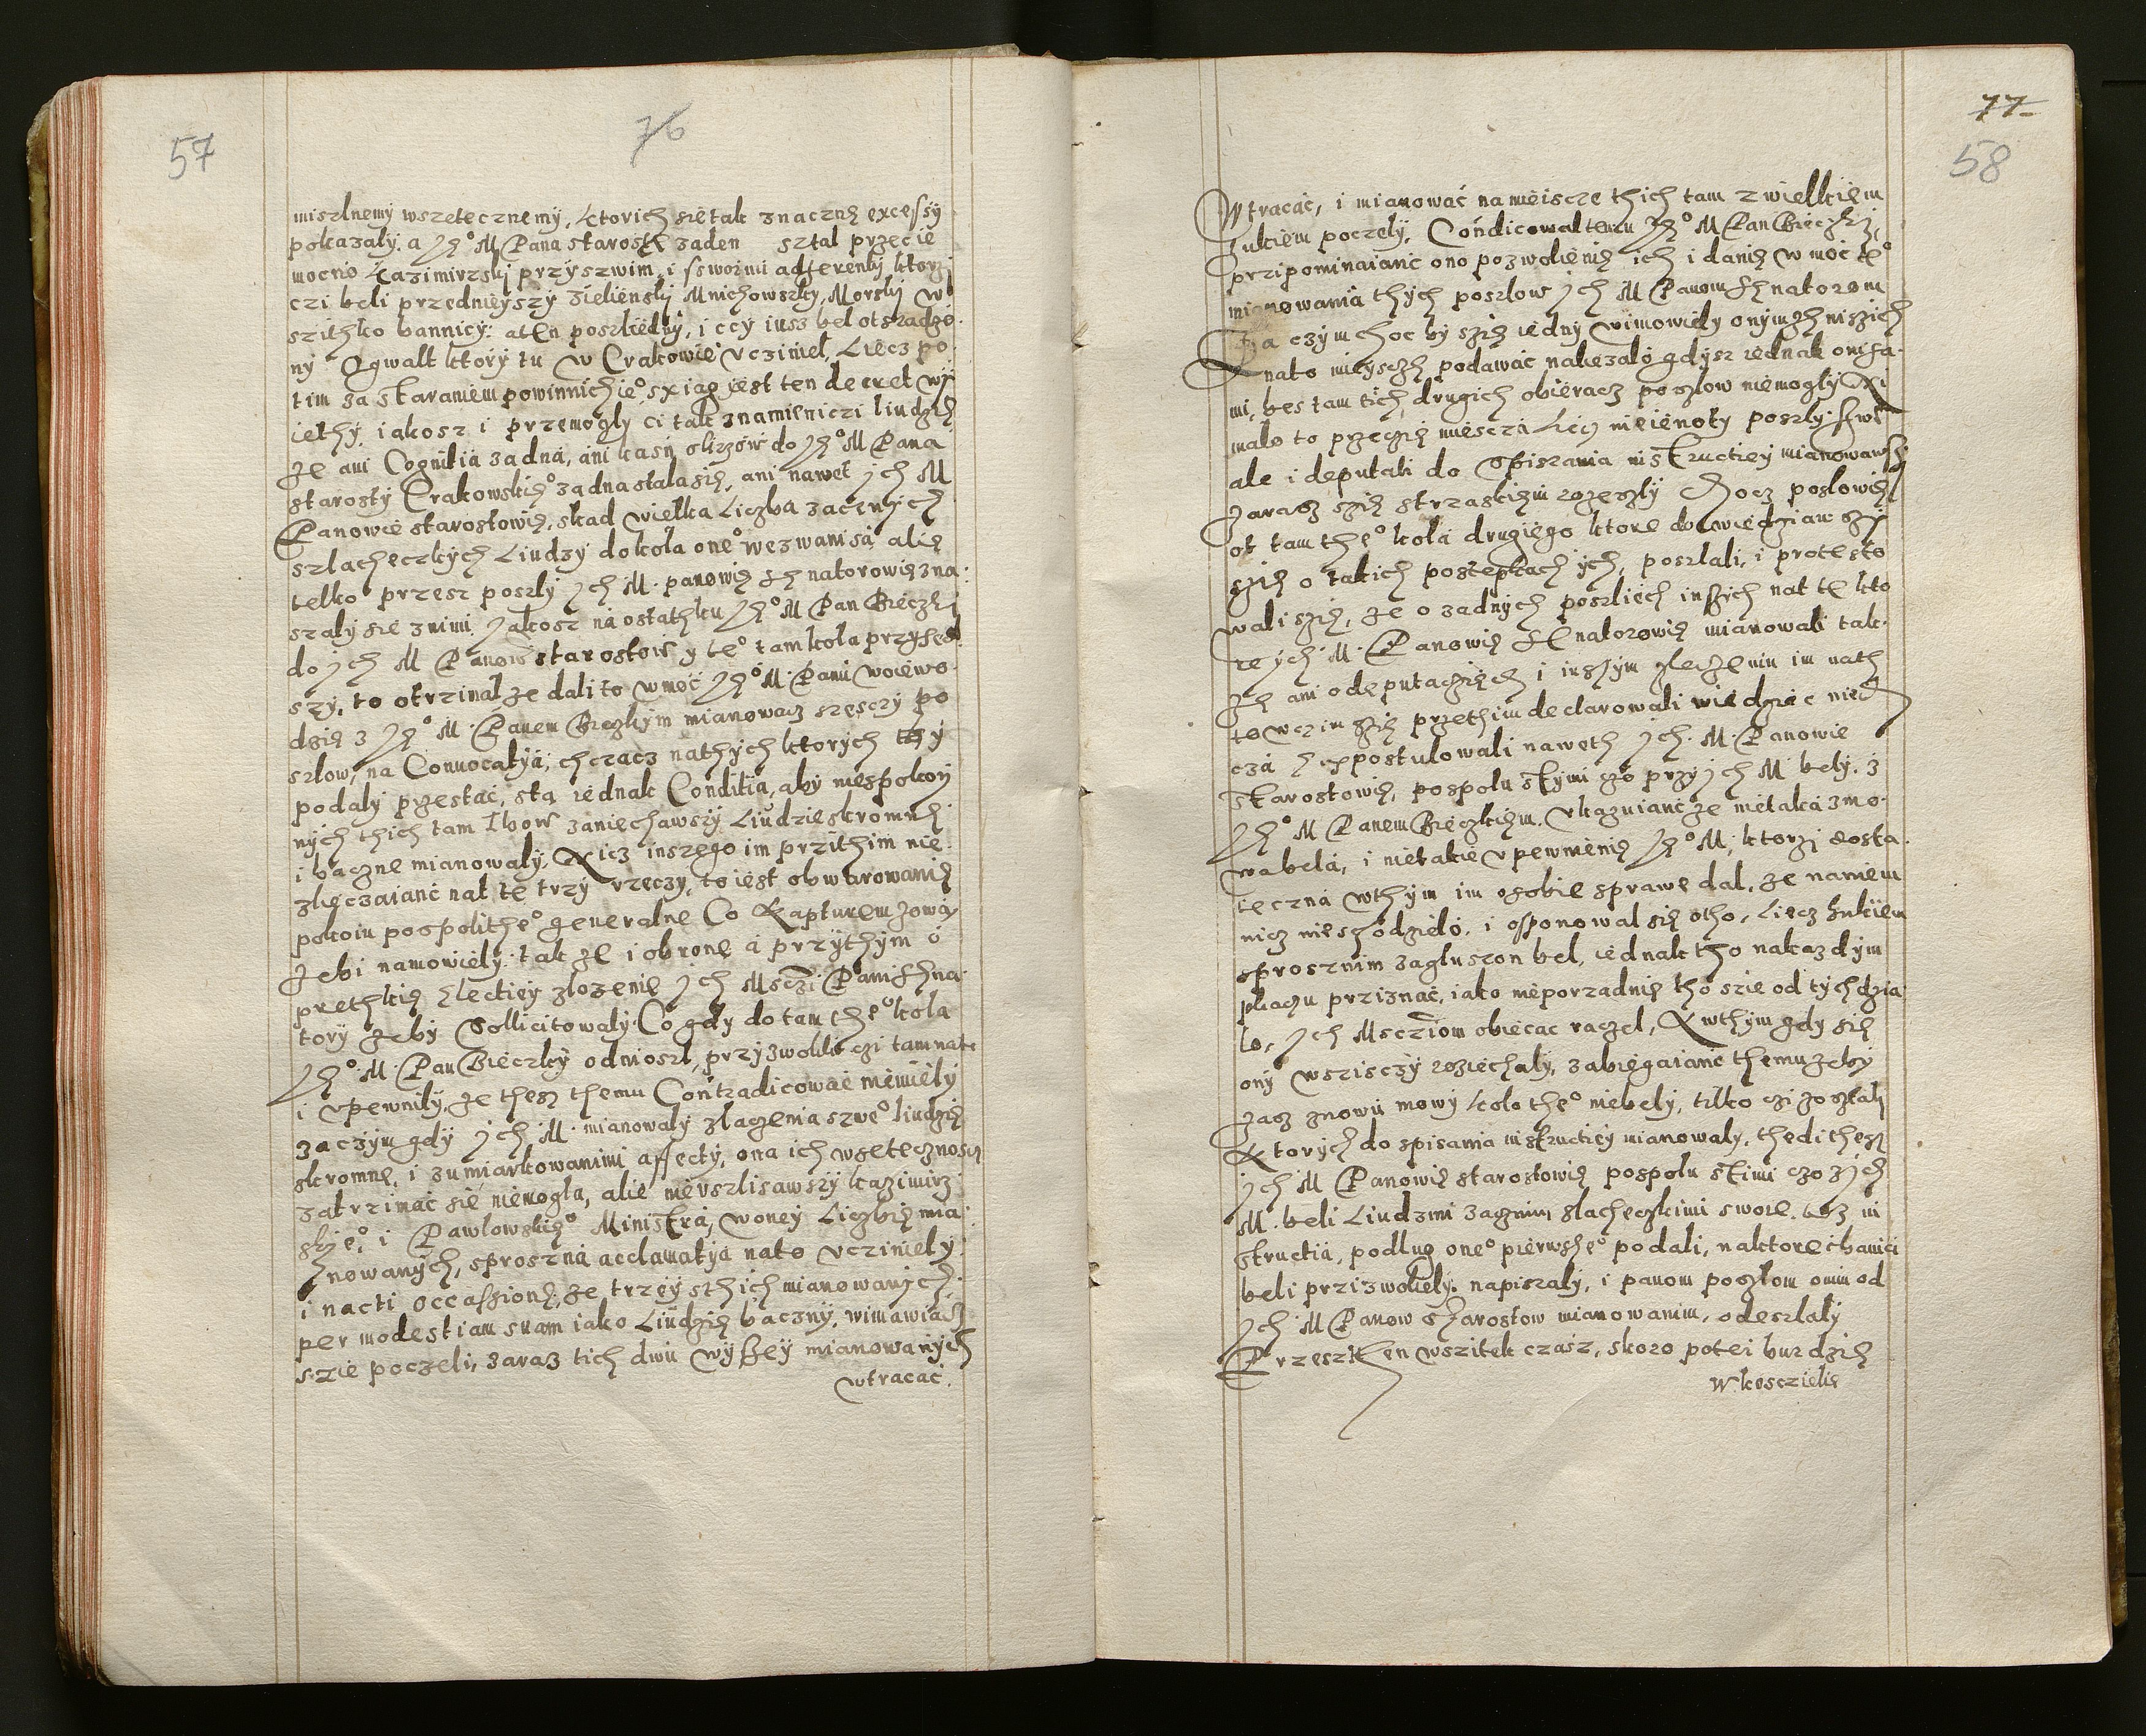 57
76
miszlnemÿ wszetecznemÿ, ktorich sie tak znacznę excessÿ
pokazalÿ. a Je° M Pana starostę zaden sztal przecie
mocno Kazimirzski przÿszwim, i sswoimi adherentÿ ktorzi
czi beli przednieÿszÿ Zielienski Mnichowszkÿ, Morski w
szithko bannicÿ: a ten poszliednÿ, i czÿ iusz bel otsządzo
nÿ Ogwalt ktorÿ tu w Crakowie vczÿniel, Liecz po
tim za staraniem powinnich ie° sxiąg iest ten decret wÿ
ięthÿ. iakosz i przemoglÿ ci tak znamieniczi liudzię
ze ani Cognitia żadna, ani do Je° M Pana
starostÿ Crakowskie° żadna stala się, ani nawet ich M
Panowie starostowię, skad wielka Liczba zacznÿch
szlacheczkÿch Liudzÿ do kola one° wezwani są alię
telko przesz poszlÿ ich M. panowię senatorowię zna:
szalÿ sie z nimi. Jakosz na ostathku Je° M Pan Bieczki
do ich M Panow starostow ÿ te° tam kola przÿszed
szÿ, to otrzimal ze dali to w moc Je° M. Panu woiewo
dzię z Je° M. Panem Bieczkÿm mianowacz szesczÿ po
szlow, na Conuocatÿa, chcącz na thÿch ktorÿch
podalÿ przestać, stą iednak Conditia, abÿ niespokoÿ
nÿch thich tam lbow zaniechawszÿ Liudzie skromne
i baczne mianowalÿ, Nicz inszego im prÿthim nie
zlięczaianc nat te trzÿ rzeczÿ, to iest obwarowanię
pokoiu pospolithe° generalne Co Kapturem zową
Zebi namowielÿ: tak że i obronę a przÿthÿm o
prethkię Electieÿ zlożenie ich Msczi Pani Sena
torÿ żebÿ Sollicitowalÿ. Co gdÿ do tam the° kola
Je° M. Pan Bieczkÿ odnioszl, przÿzwolili czi tam nato
i vpewnilÿ, że thesz themu Contradicować niemielÿ
zaczÿm gdÿ ich M. mianowalÿ zlączenia szwe° liudzię
skromnę, i zumiarkowanimi affectÿ, ona ich wszetecznoscz
zatrzimać się niemogla, alie nievszlisawszÿ kazimirz
skie°, i Pawlowskie° Ministra, w oneÿ Liczbię mia
nowanÿch, sproszną acclamatÿą nato vczinielÿ
i nacti occassionę, że trzeÿ sthich mianowanÿch
per modestiam suam iako Liudzię bacznÿ, wimawiacz
szie poczeli, zaraz tich dwu wÿsseÿ mianowanÿch
wtracać.
77
58
Wtracać, i mianować na mieiscze thich tam z wielkiem
hukiem poczelÿ, Condicowal temu Je° M Pan Bieczki,
przipominaianc ono pozwolienię ich i danię w moc te°
mianowania thÿch poszlow ich M Panom senatorom
Za czÿm choc bÿ szię iednÿ wimowielÿ onÿm że niszich
nato mieÿscze podawać nalezalo gdÿsz iednak oni sa
mi, bes tam tich, drugich obieracz poszlow niemoglÿ Ni
malo to przeczię miescza Liecz nie ienotÿ poszlÿ swe
ale i deputati do Spisania instructieÿ mianowawszÿ
zarasz szię strzaskiem rozeszlÿ Chocz poslowie
ot tam the° kola drugiego ktore dowiedziawszÿ
szię o takich postepkach ich, poszlali, i protesto
wali szię, że o żadnÿch poszliech inszich nat te kto
re ich M. Panowię Senatorowię mianowali tak
że ani o deputacziech i inszÿm zleczeniu im nath
to wczim szię przethim declarowali wiedziec niech
czą Expostulowali naweth ich. M. Panowie
Starostowię, pospolu stÿmi czo przÿ ich M belÿ. z
Je° M Panem Bieczkiem. vkazuianc że nie taka zmo
wa bela, i nie takie vpewnienię Je° M, ktorzi dosta
teczną wthÿm im o sobie sprawę dal, że na niem
nicz nie schodzielo, i opponowal się otho, Liecz hukiem
sprosznim zagluszon bel, iednak tho na kazdÿm
placzu priznać, iako nieporzadnię tho szie od tÿch dzia
lo, ich Msczÿom obiecac raczel, A wthÿm gdÿ się
onÿ wszisczÿ roziechalÿ, zabiegaianc themu żebÿ
zasz znowu mowÿ kolo the° niebelÿ, tilko czi zostali
Ktorÿch do spisania instructieÿ mianowalÿ, thedi thesz
ich M Panowię starostowię pospolu stimi czo z ich
M. beli Liudzmi zacznimi slacheczkimi swoie tesz in
structią, podlug one° pierwsze° podali, na ktorę ci banici
beli przizwolielÿ. napiszalÿ, i panom poszlom onim od
ich M Panow Starostow mianowanim, odeszlalÿ
Przesz then wszitek czasz, skoro po tei burdzię
W kosczielię